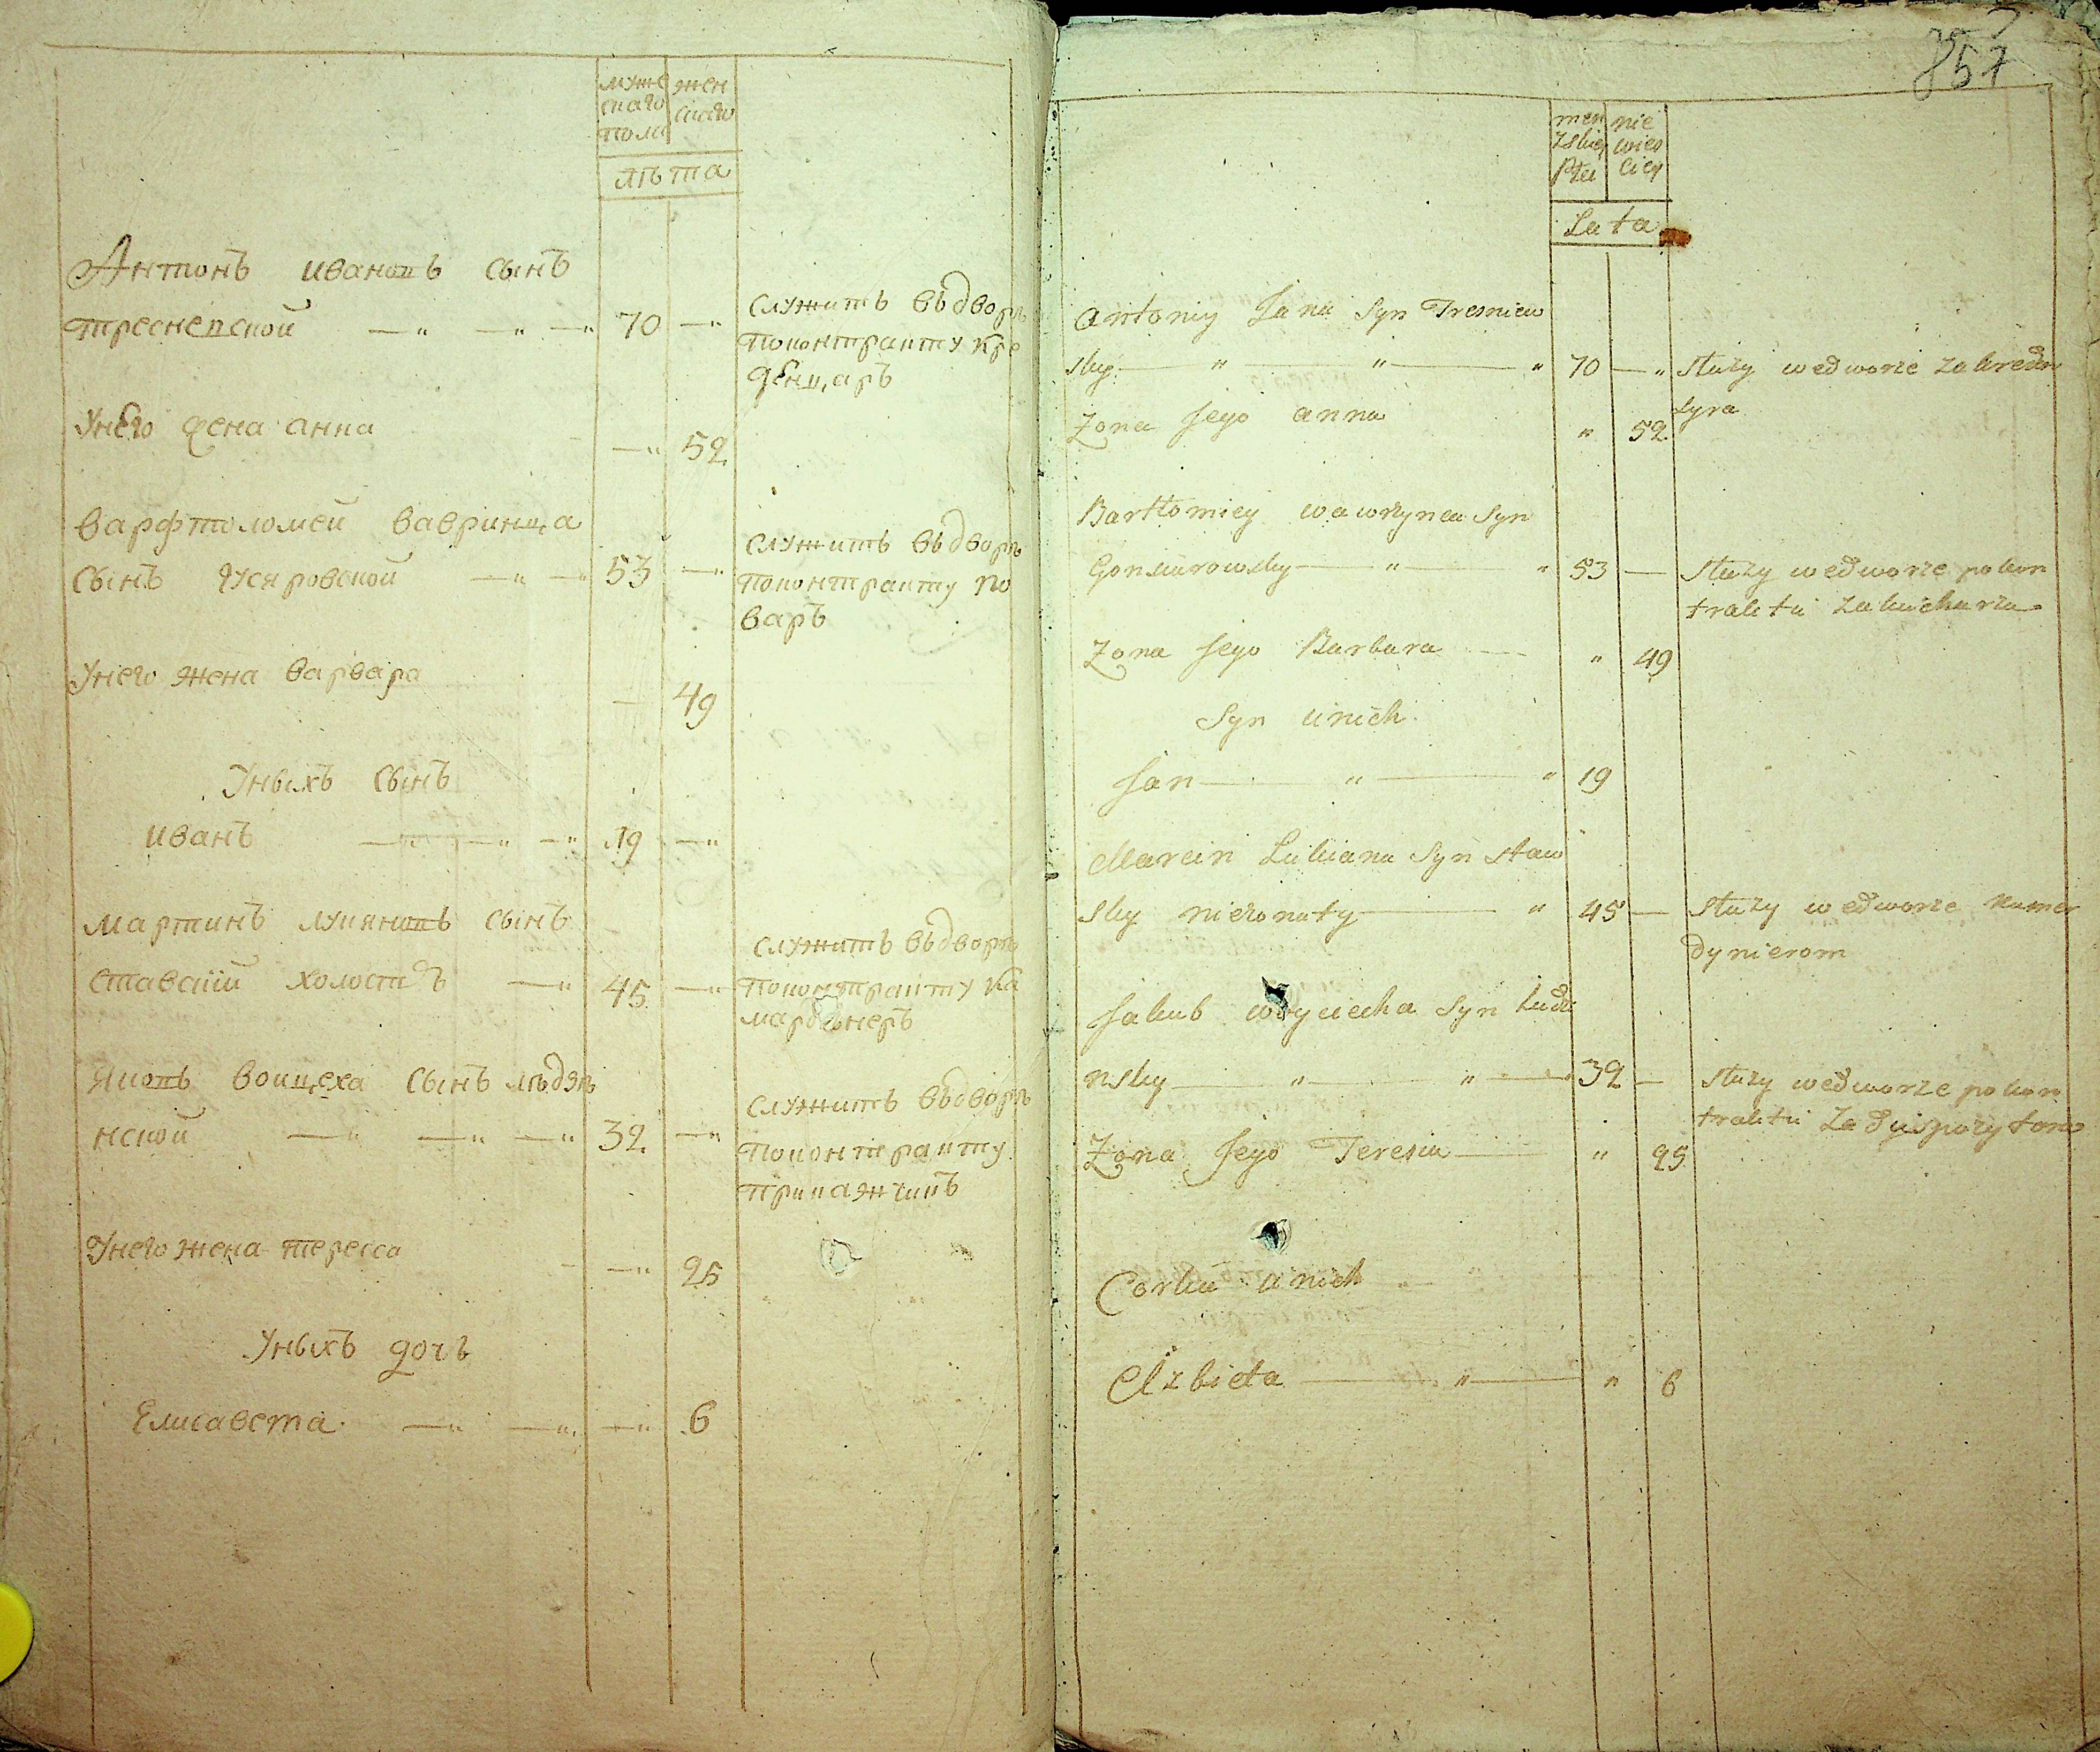 муже
скаго
полу
жен
скаго
лѣта
Антонъ ивановъ сынъ
тресневской 70
служитъ вьдворѣ
поконтракту кре
денцаръ
Унего жена анна 52
варфтоломей вавринца
сынъ гусяровской 53
служитъ вьдворѣ
поконтракту по
варъ
Унего жена варвара 49
Уныхъ сынъ
иванъ 19
мартинъ лукяновъ сынъ
ставский холостъ 45
служитъ вьдворѣ
поконтракту ка
мардинеръ
Яковъ воицеха сынъ
нской 32
служитъ вьдворѣ
поконтракту
приказчикъ
Унего жена тересса 25
Уныхъ дочь
Елисавета 6
857
men
zskiey
Płci
nie
wies
ciey
Lata
Antoniy Jana Syn Tresniew
sky 70 służy wedworze za kreden
syra
Zona Jego anna 52
Bartłomiey wawrzynca Syn
Gonsiurowsky 53 Służy wedworze pokon
traktu za kucharza
Zona Jego Barbara 49
Syn unich
Jan 19
Marcin Lukiana Syn staw
sky niezonaty 45 Służy wedworze kamer
dynierom
Jakub woyciecha Syn
nsky 32 służy wedworze pokon
traktu Za
Zona Jego Teresia 25
Corka unich
Elzbieta 6